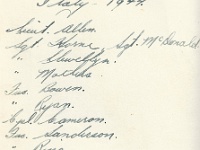 Italy - 1944.
Lieut. Allen.
Sgt. Hume, Sgt. McDonald
" Llewellyn.
" Mathias.
Gnr. Bowen.
" Ryan.
Cpl. Cameron.
Gnr. Sanderson.
" King